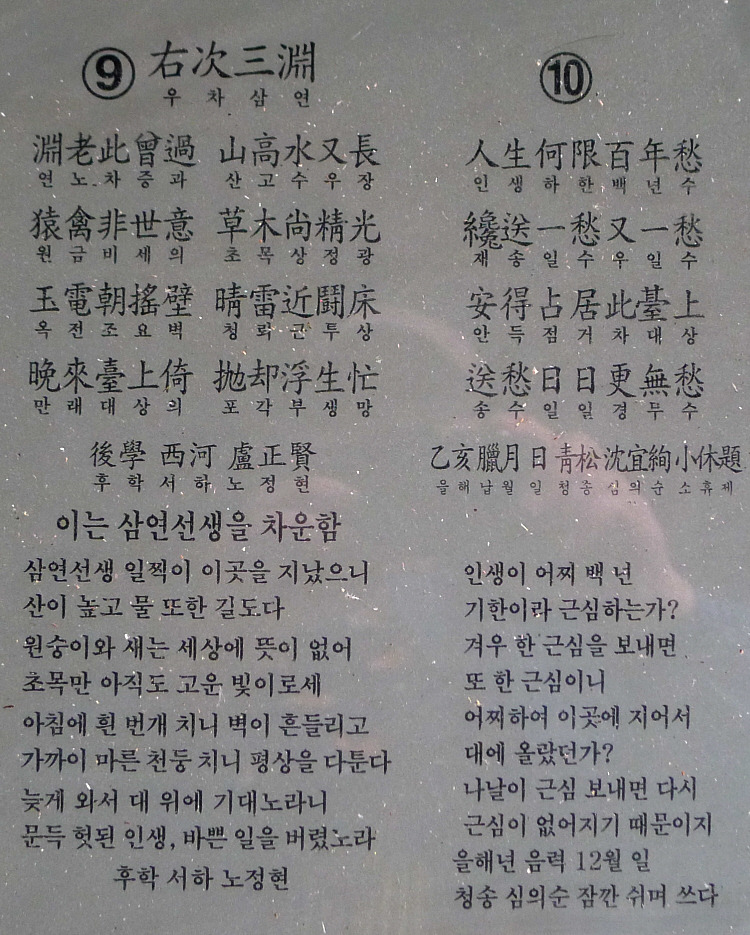 ⑨ 右次三淵
우차삼연
淵老此曾過 山高水又長
연노차증과 산고수우장
猿禽非世意 草木尚精光
원금비세의 초목상정광
玉電朝搖壁 晴雷近鬪床
옥전조요벽 청뢰근투상
晚來臺上倚 抛却浮生忙
만래대상의 포각부생망
後學 西河 盧正賢
후학 서하 노정현
이는 삼연선생을 차운함
삼연선생 일찍이 이곳을 지났으니
산이 높고 물 또한 길도다
원숭이와 새는 세상에 뜻이 없어
초목만 아직도 고운 빛이로세
아침에 흰 번개 치니 벽이 흔들리고
가까이 마른 천둥 치니 평상을 다툰다
늦게 와서 대 위에 기대노라니
문득 헛된 인생, 바쁜 일을 버렸노라
후학 서하 노정현
⑩
人生何限百年愁
인생하한백년수
纔送一愁又一愁
재송일수우일수
安得占居此臺上
안득점거차대상
送愁日日更無愁
송수일일경무수
乙亥臘月 日 青松 沈宜絢 小休題
을해납월 일 청송 심의순 소휴제
인생이 어찌 백 년
기한이라 근심하는가?
겨우 한 근심을 보내면
또 한 근심이니
어찌하여 이곳에 지어서
대에 올랐던가?
나날이 근심 보내면 다시
근심이 없어지기 때문이지
을해년 음력 12월 일
청송 심의순 잠깐 쉬며 쓰다